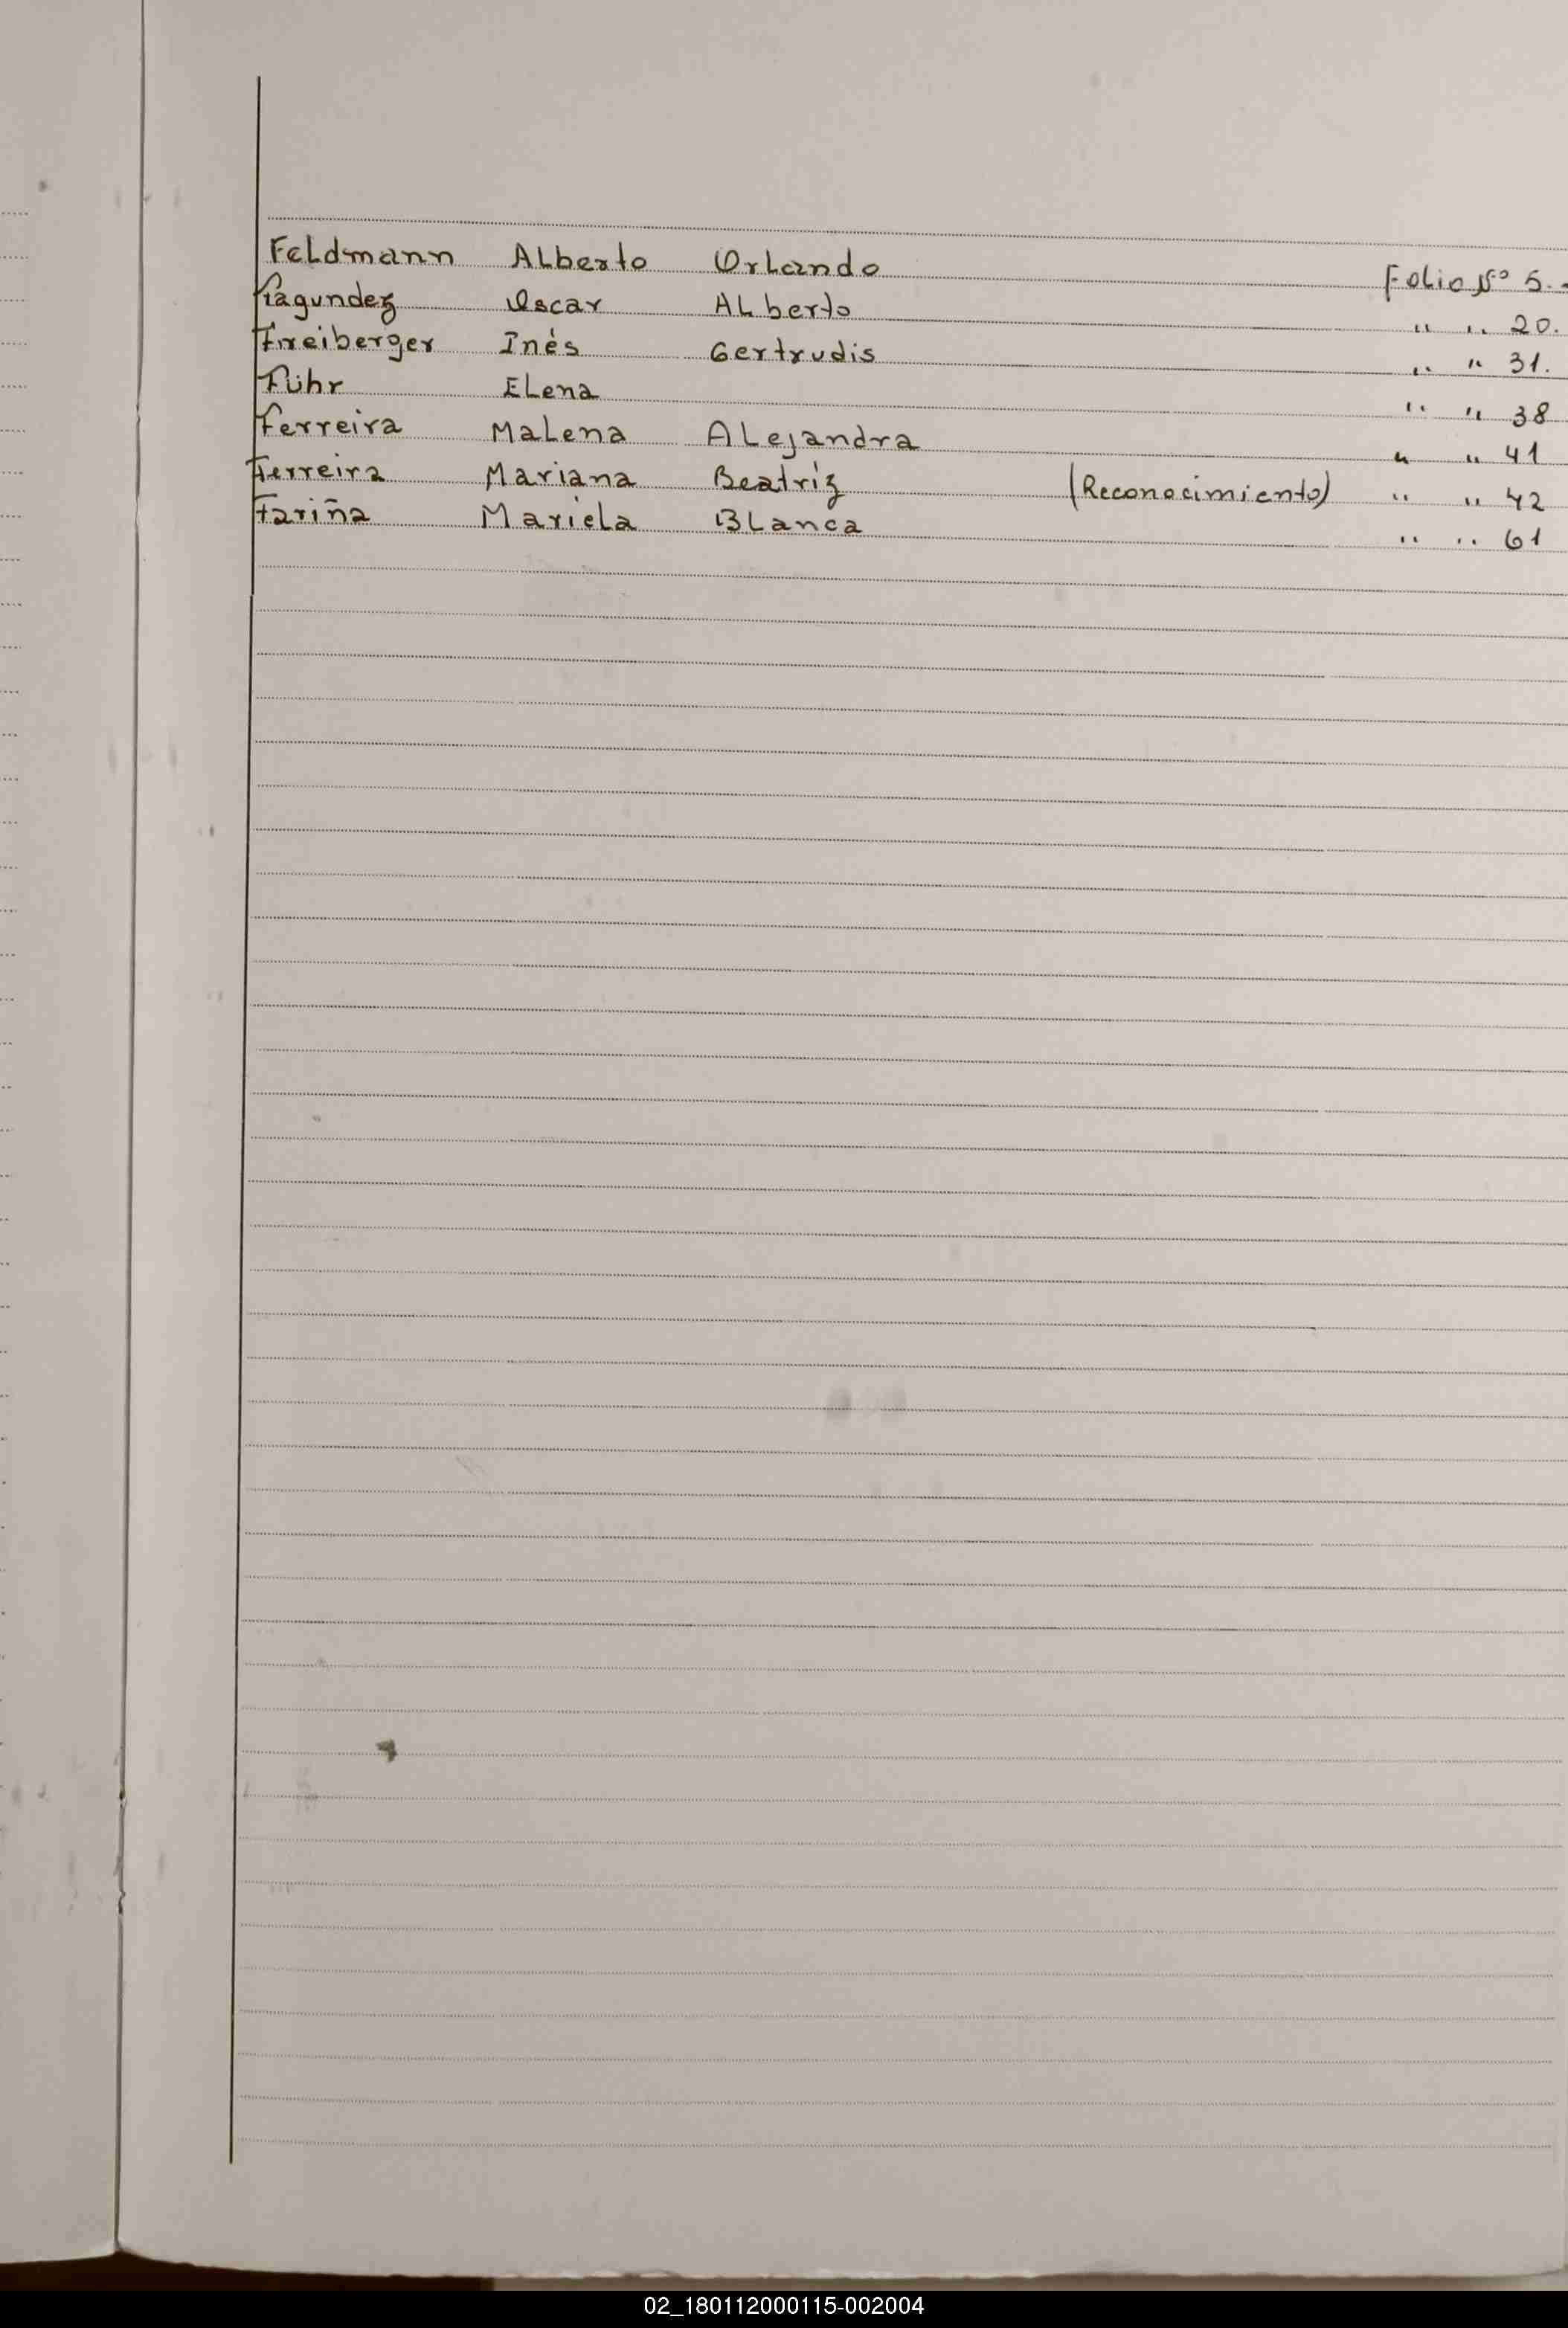 Feldmann Alberto Orlando Folio Nº 5.-
Fagundez Oscar Alberto " " 20.
Freiberger Inés Gertrudis " " 31.
Führ Elena " " 38
Ferreira Malena Alejandra " " 41
Ferreira Mariana Beatríz (Reconocimiento) " " 42
Fariña Mariela Blanca " " 61
02_180112000115-002004